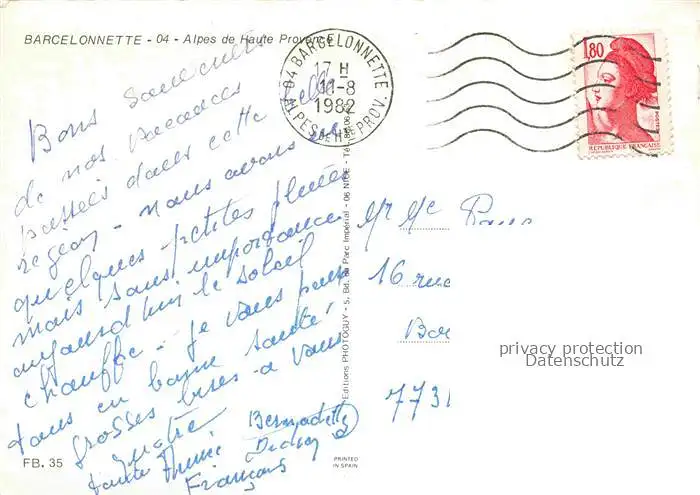 BARCELONNETTE - 04 - Alpes de Haute Provence
04 BARCELONNETTE
17 H
11-8
1982
ALPES DE HTE PROV.
1,80
REPUBLIQUE FRANCAISE
Bons Souvenirs
de nos vacances
passées dans cette belle
région - nous avons eu
quelques petites pluies
mais sans importance
aujourd'hui le soleil
chauffe - je vous
tous en bonne santé
grosses bises a vous
quatre
Bernadette
Didier
François
Mr Me
16 rue
Bor
7731
Editions PHOTOGUY - 5, Bd. du Parc Impérial - 06 NICE - Tél.
privacy protection
Datenschutz
FB. 35
PRINTED
IN SPAIN